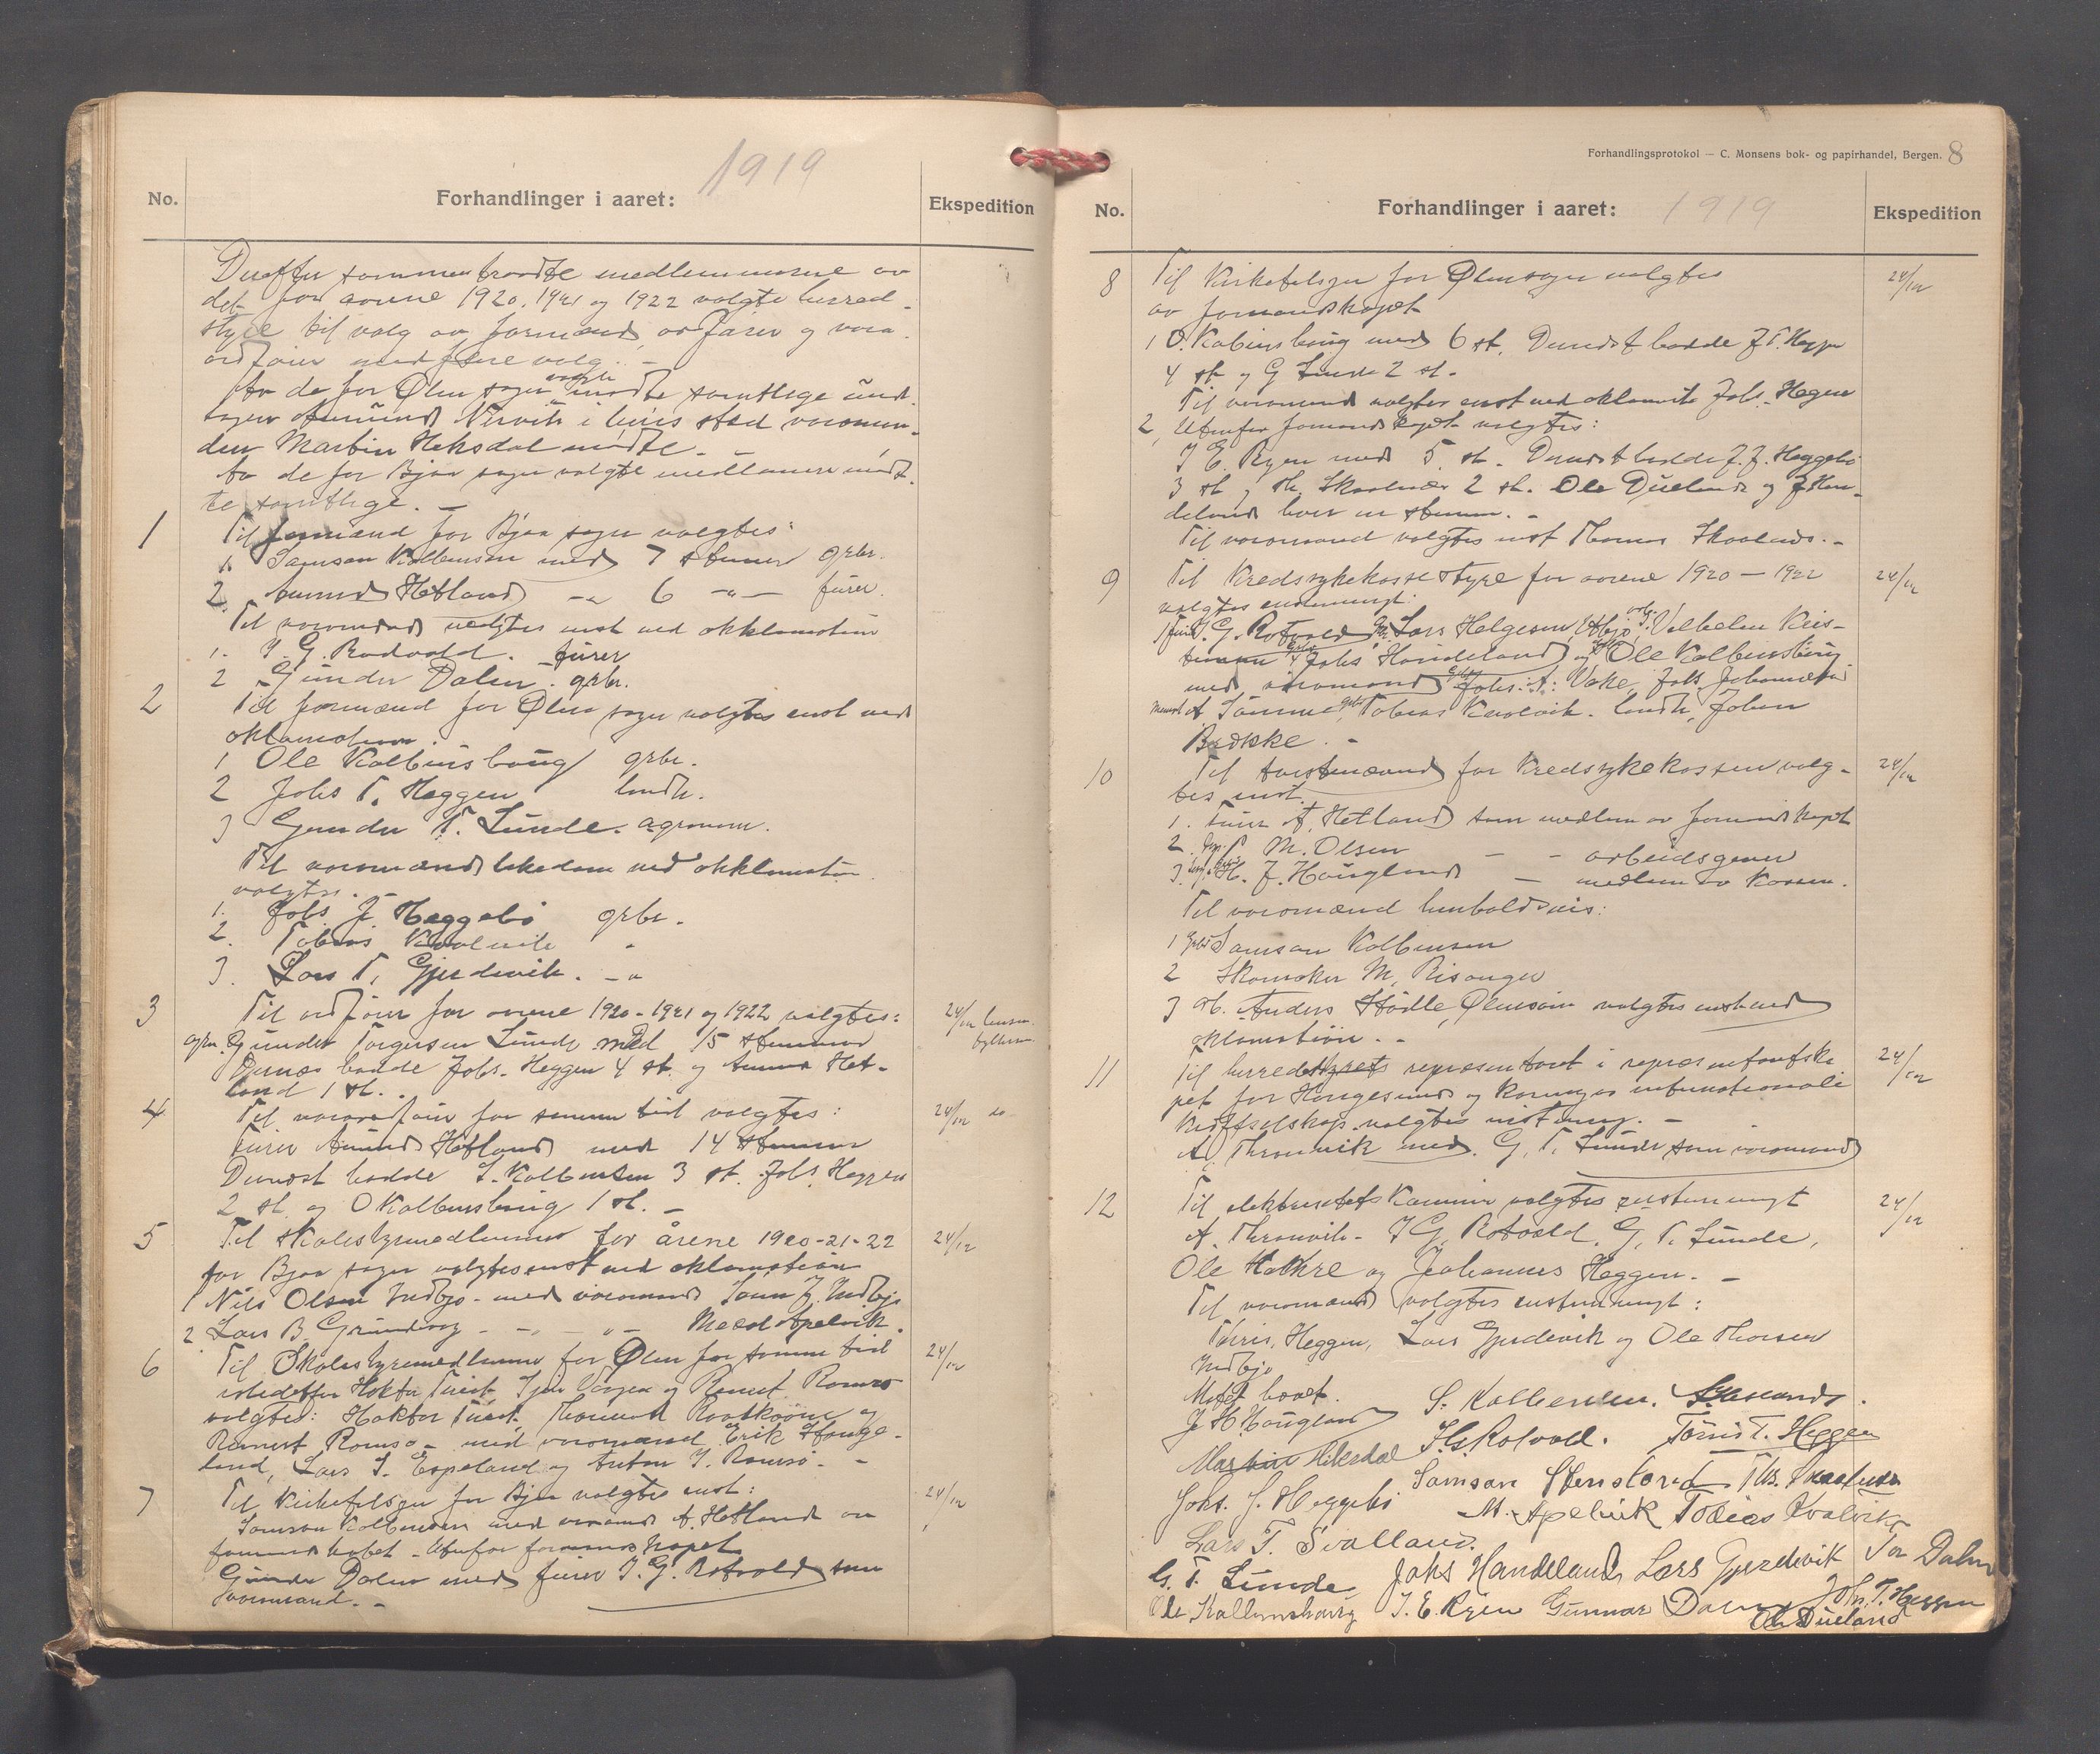 1919
No.
Forhandlinger i aaret:
Ekspedition
Derefter sammentraadte medlemmerne av
det for aarene 1920, 1921 og 1922 valgte herred-
styre til valg av formænd, ordfører og vara
ordfører med flere valg. -
Av de for Ølen sogn valgte mødte samtlige und-
tagen Amund Nervik i hvis sted varaman-
den Martin Heksdal mødte. -
Av de for Bjoa sogn valgte medlemmer mødt-
te samtlige. -
1 Til formænd for Bjoa sogn valgtes:
1. Samson Kolbensen med 7 stemmer grbr.
2. Amund Hetland -"- 6 -"- furer.
Til varamænd valgtes enst ved akklamation
1. I. G. Rodvold. furer
2 Gunder Dalen. grbr.
2 Til formænd for Ølen sogn valgtes enst ved
aklamation.
1 Ole Kolbeinshaug grbr.
2 Johs T. Heggen landh.
3 Gunder T. Lunde. agronom.
Til varamænd likedan ved akklamation
valgtes. -
1. Johs. J. Heggebø grbr.
2. Tobias Kvalvik "
3. Lars T. Gjerdevik. - "
3 Til ordfører for aarene 1920-1921 og 1922 valgtes: 24/12
agrn. Gunder Torgersen Lunde med 15 stemmer
Dernæs hadde Johs. Heggen 4 st. og Amund Het-
land 1 st. .
4 Til varaordfører for samme tid valgtes: 24/12 do
Furer Amund Hetland med 14 stemmer
Dernæst hadde S. Kolbensen 3 st. Johs. Heggen
2 st. og O Kolbenshaug 1 st. -
5 Til skolestyremedlemmer for årene 1920-21-22 24/12
for Bjoa sogn valgtes enst ved aklamation
1 Nils Olsen Indbjo - med varamand Tønn J. Indbjo
2 Lars B. Grindvog - " - " - Mead Apelvik.
6 Til Skolestyremedlemmer for Ølen for samme tid 24/12
valgtes: Hoktor Tveit, Thormod Raatkaane og
Reinert Romsø - med varamænd Erik Hauge-
land, Lars I. Espeland og Anton J. Romsø. -
7 Til Kirketilsyn for Bjoa valgtes enst: 24/12
Samson Kolbensen med varamd A. Hetland av
formandskabet - Utenfor formandskapet
Gunder Dalen med furer I. G. Rotvold som
varamand. -
Forhandlingsprotokol — C. Monsens bok- og papirhandel, Bergen. 8
No.
Forhandlinger i aaret: 1919
Ekspedition
8 Til Kirketilsyn for Ølen sogn valgtes 24/12
av formandskapet
1 O. Kolbeinshaug med 6 st. Dernæst hadde J. T. Heggen
4 st og G Lunde 2 st.
Til varamand valgtes enst ved aklamation Johs. Heggen
2, Utenfor formandskapet valgtes:
I E. Ryen med 5 st. Dernæst hadde J. J. Heggebø
3 st og Th. Skaalnes 2 st. Ole Dueland og J Han-
deland hver en stemme. -
Til varamand valgtes enst Thomas Skaalnes. -
9 Til Kredssykekassestyre for aarene 1920 — 1922 24/12
valgtes enstemmigt:
I. G. Rotvold Lars Helgesen Utbjo, Vilhelm Kris-
tensen Johs Handeland og Ole Kolbenshaug
med varamænd Johs. A. Vake, Johs. Johannesen
A Tømme, Tobias Kvalvik. landh. Johan
Bædkke. -
10 Til tvistenævnd for Kredssykekassen valg- 24/12
tes enst.
1. Furer A. Hetland som medlem av formandskapet
2. P M. Olsen - - arbeidsgiver
3. H. J. Haugland - medlem av kassen.
Til varamænd henholdsvis:
1 Grbr Samson Kolbensen
2 Skomaker M. Risanger
3 Anders Støtle, Ølensøen valgtes enst ved
aklamation. -
11 Til herredstyrets repræsentant i repræsentantska- 24/12
pet for Haugesund og Karmøens interkommunale
kraftselskap valgtes enstemmig. -
A. Thronvik med G. T. Lunde som varamand
12 Til elektrisitetskommission valgtes enstemmigt 24/12
A. Thronvik - I G. Rotvold. G. T. Lunde,
Ole Hatkre og Johannes Heggen. -
Til varamænd valgtes enstemmigt:
Tørris Heggen, Lars Gjerdevik og Ole Thorsen
Indbjo
Møtet hævet.
J. H. Haugland S. Kolbensen. A. Hetland.
Martin Heksdal I. G. Rotvold. Tørris T. Heggen
Johs. J. Heggebø Samson Stensland Ths. Skaalnes
Lars T. Svalland. M. Apelvik Tobias Kvalvik
G. T. Lunde Johs Handeland Lars Gjerdevik Tor Dalen
Ole Kolbenshaug I. E. Ryen Gunnar Dalen Joh. T. Heggen
Ole Dueland